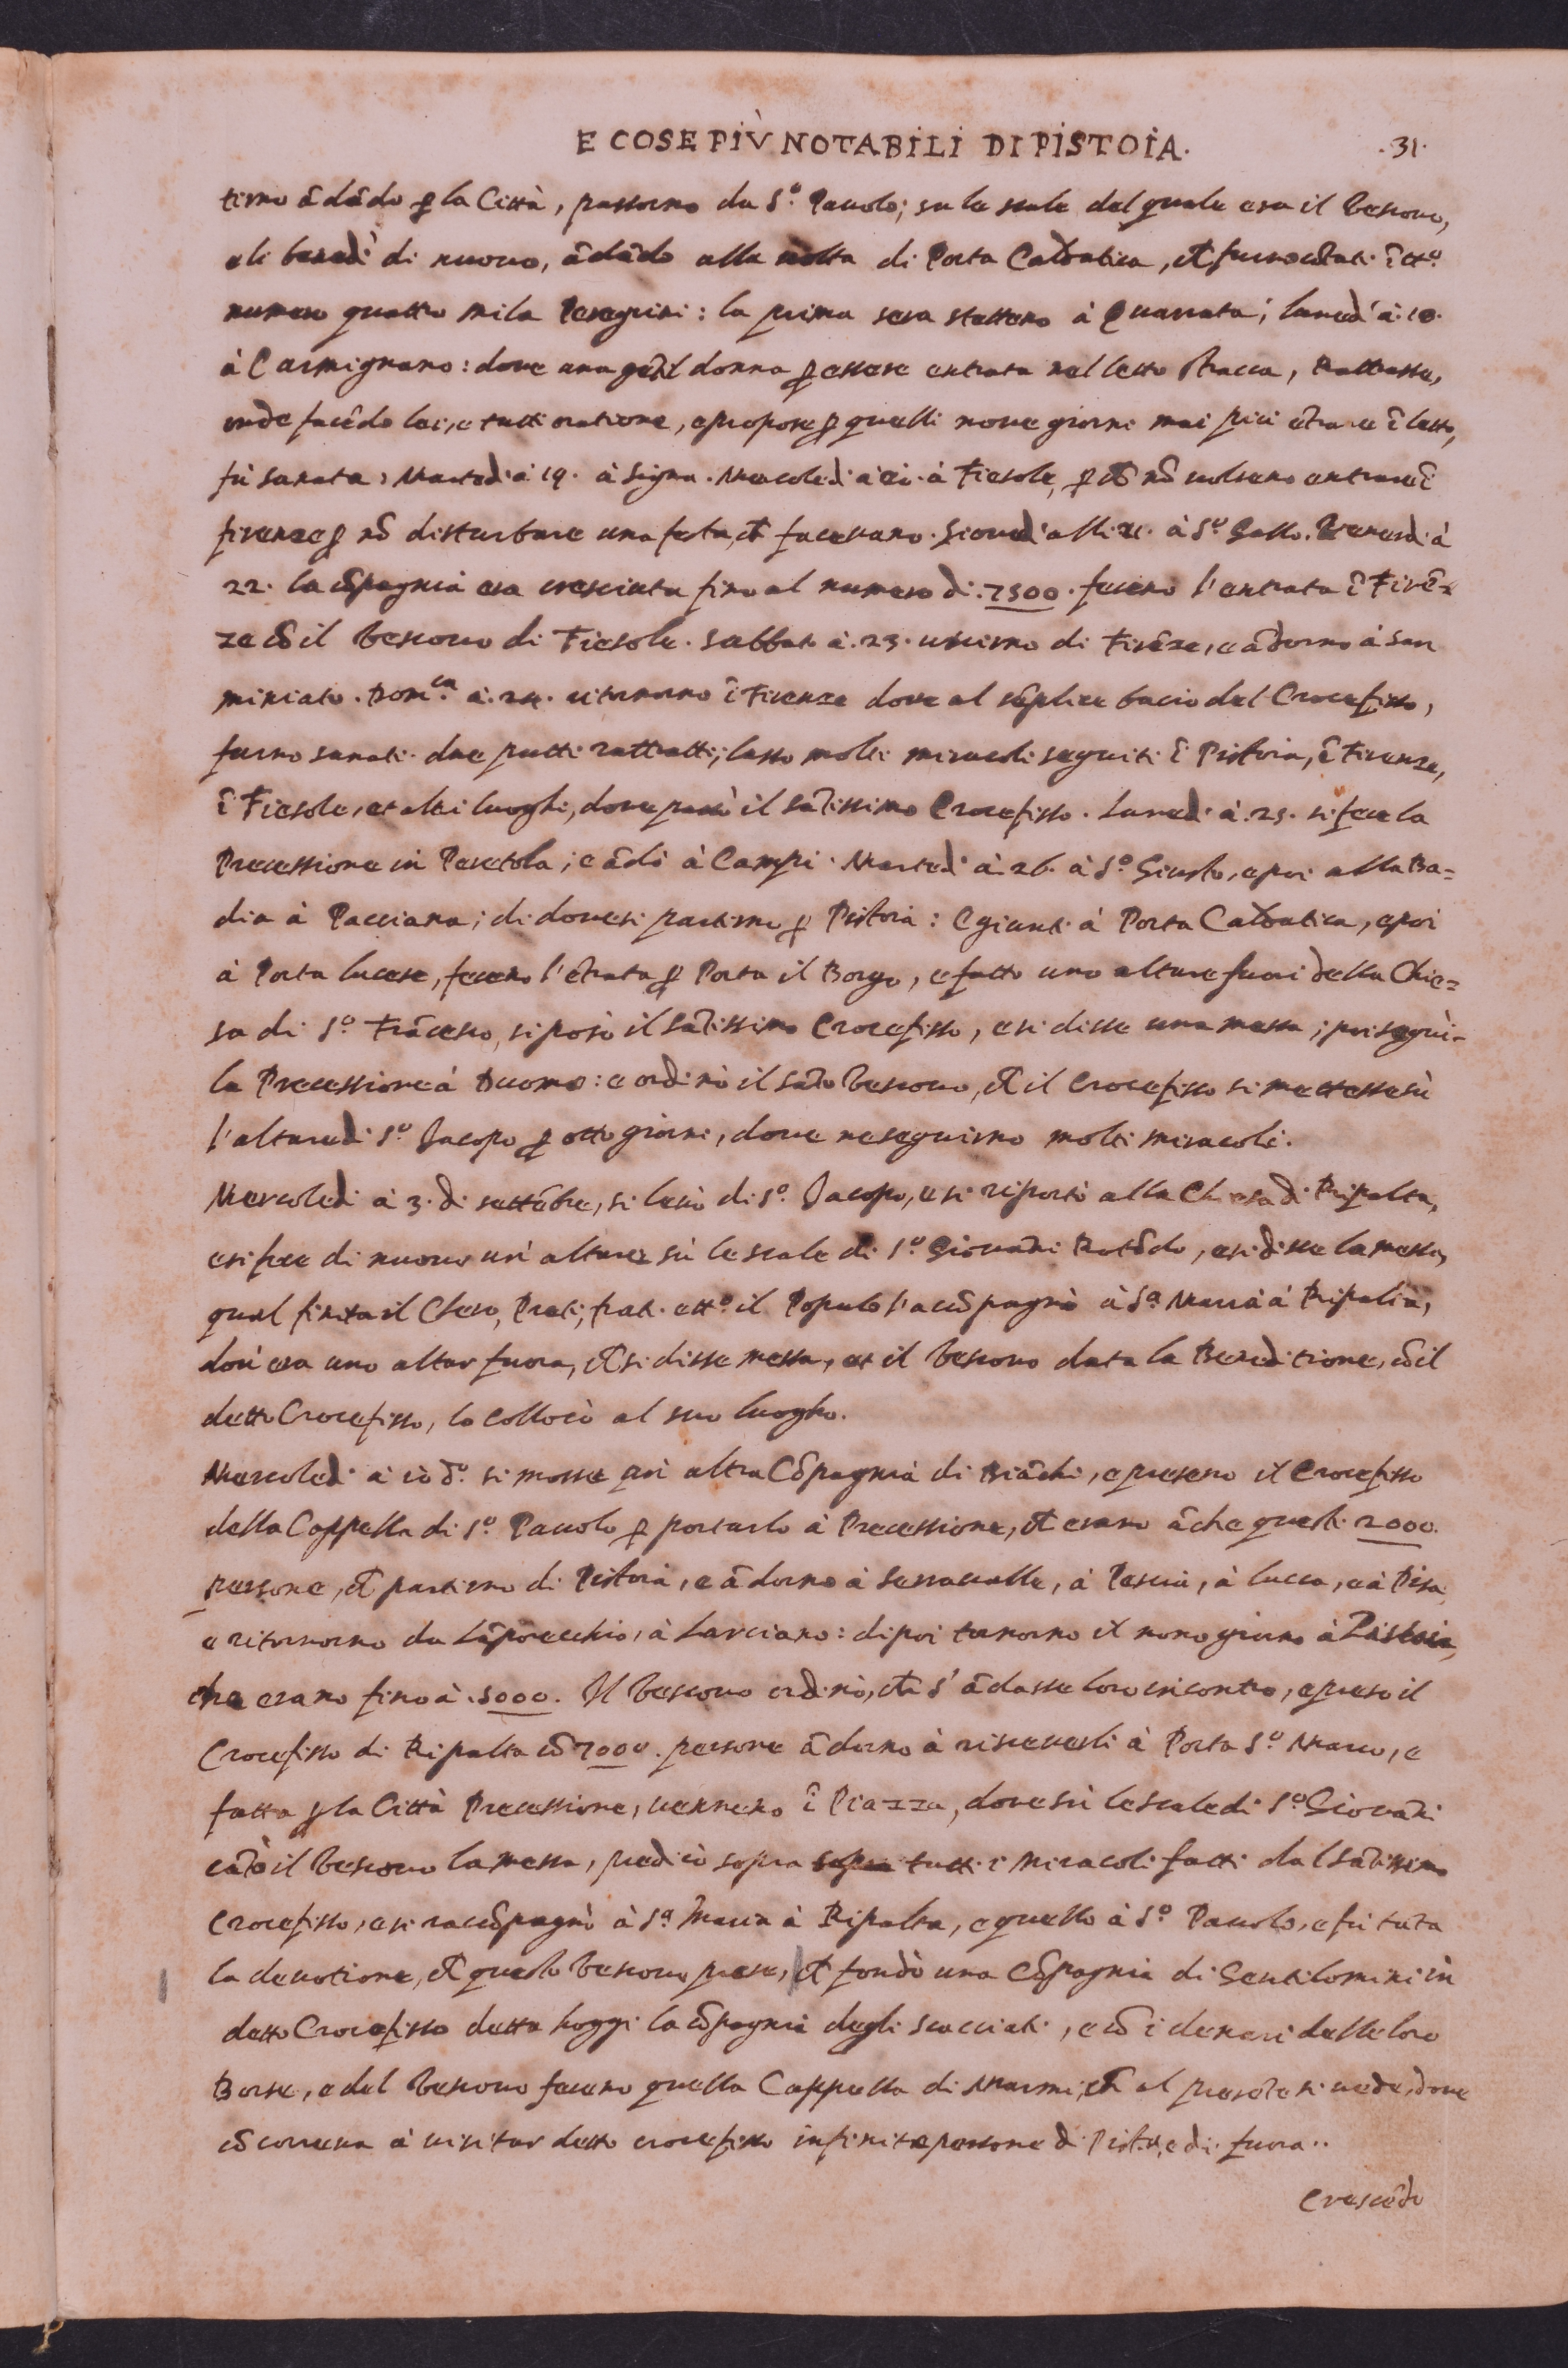 E COSE PIÙ NOTABILI DI PISTOIA. .31.
tirno ādādo ꝑ la Città, passorno da S.º Pauolo; su le scale del quale era il Vescouo,
e li benedì di nuouo, ādādo alla uolta di Porta Caldatica, et furno cōtati ī tt.º
numero quattro mila Peregrini: la prima sera stettero à Quarrata; lunedì à 18.
à Carmignano: doue una gētil donna ꝑ essere entrata nel letto stracca, Rattrasse,
onde facēdo lei, e tutti oratione, e propose ꝑ quelli noue giorni mai più ētrare ī letto,
fù sanata, Martedì à 19. à Signa. Mercoledì à 20. à Fiesole, ꝑ chē nō uolsero entrare ī
firenze ꝑ nō disturbare una festa, chē faceuano. Giouedì alli 21. à S.º Gallo. Venerdì à
22. la cōpagnia era cresciuta fino al numero di .7500. fecero l'entrata ī Firē-
ze cō il Vescouo di Fiesole. Sabbato à .23. uscirno di Firēze, e ādorno à San
miniato. Dom.ca à .24. ritornorno ī Firenze doue al sēplice bacio del Crocefisso,
furno sanati due putti rattratti; lasso molti miracoli seguiti ī Pistoia, ī Firenze,
ī Fiesole, et altri luoghi, doue passò il sātissimo Crocefisso. Lunedì à .25. si fece la
Precessione in Peretola; e ādò à Campi. Martedì à 26. à S.º Giusto, e poi alla Ba=
dia à Pacciana; di doue si partirno ꝑ Pistoia: E giunti à Porta Caldatica, e poi
à Porta lucese, fecero l'ētrata ꝑ Porta il Borgo, e fatto uno altare fuori della Chie=
sa di S.º Frācesco, si posò il sātissimo Crocefisso, e si disse una messa; poi seguì-
la Precessione à Duomo: e ordinò il sāto Vescouo, chē il Crocefisso si mettesse sù
l'altare di S.º Jacopo ꝑ otto giorni, doue ne seguirno molti miracoli.
Mercoledì à 3. di settēbre, si leuò di S.º Jacopo, e si riportò alla Chiesa di Ripalta,
e si fece di nuouo un' altare sù le scale di S.º Giouāni Rotōdo, e si disse la messa,
qual finita il Clero, Preti, frati e tt.º il Popolo l'accōpagnò à S.ª Maria à Ripalta,
dou' era uno altar fuora, chē si disse messa, et il Vescouo data la Beneditione, cō il
detto Crocefisso, lo collocò al suo luogho.
Mercoledì à 10 d.º si mosse un' altra Cōpagnia di Biāchi, e presero il Crocefisso
della Cappella di S.º Pauolo ꝑ portarlo à Precessione, chē erano āche questi 2000.
persone, chē partirno di Pistoia, e ādorno à Serraualle, à Pescia, à Lucca, e à Pisa
e ritornorno da Lāporecchio, à Larciano: dipoi tornorno il nono giorno à Pistoia,
che erano fino à .5000. Il Vescouo ordinò, chē s'ādasse loro incontro, e preso il
Crocefisso di Ripalta cō 7000. persone ādorno à riceuerli à Porta S.º Marco, e
fatta ꝑ la Città Precessione, uennero ī Piazza, doue sù le scale di S.º Giouāni
cātò il Vescouo la messa, predicò sopra sopra tutti i Miracoli fatti dal sātissimo
Crocefisso, e si raccōpagnò à S.ª Maria à Ripalta, e quello à S.º Pauolo, e fù tāta
la deuotione, chē questo Vescouo prese, chē fondò una Cōpagnia di Gentilomini in
detto Crocefisso detta hoggi la cōpagnia degli scacciati, e cō i denari delle loro
Borse, e del Vescouo fecero quella Cappella di Marmi, chē al presēte si uede, doue
cōcorreua à uisitar detto crocefisso infinite persone di Pistoia, e di fuora..
Crescēdo